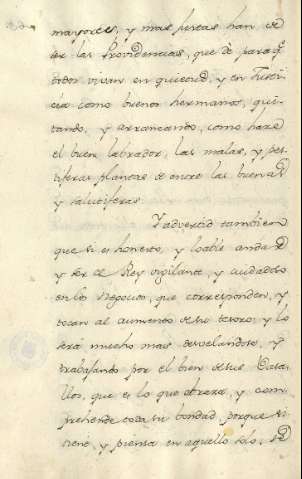 mayores, y mas justas han de
ser las Providencias, que dè para q.e
todos vivan en quietud, y en Justi-
cia como buenos hermanos, qui-
tando, y arrancando, como hace
el buen labrador, las malas, y pes-
tiferas plantas de entre las buenas
y salutiferas.
Y advertid tambien
que si es honesto, y loable andar
y ser el Rey vigilante, y cuidadoso
en los negocios, que corresponden, y
tocan al aumento de su tesoro, y lo
será mucho mas desvelandose, y
trabajando por el bien de sus Vasa-
llos, que es lo que abraza, y com-
prehende toda su bondad, porque si
tiene, y piensa en aquello solo, se